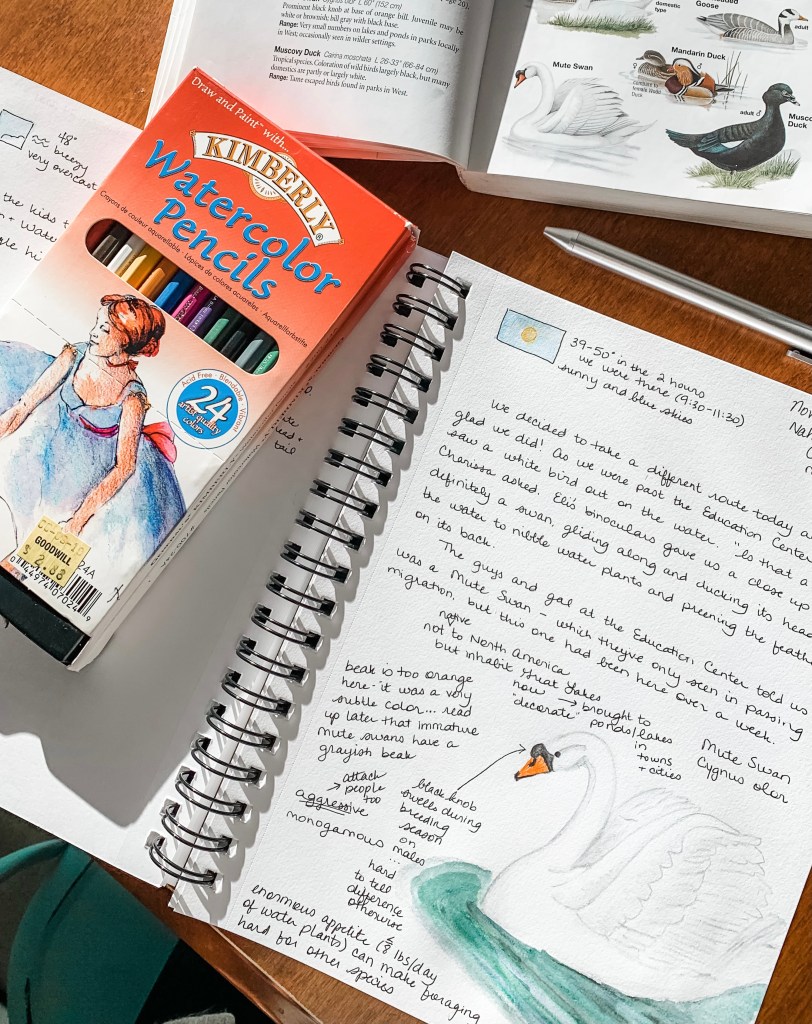 (152 cm)
Prominent black knob at base of orange bill. Juvenile may be
white or brownish; bill gray with black base.
Range: Very small numbers on lakes and ponds in parks locally
in West, occasionally seen in wilder settings.
Muscovy Duck Cairina moschata L 26-33" (66-84 cm)
Tropical species. Coloration of wild birds largely black, but many
domestics are partly or largely white.
Range: Tame escaped birds found in parks in West.
domestic
type
Goose
adult
Mute Swan
Mandarin Duck
adult ♂
Muscovy
Duck
48°
breezy
very overcast
the kids +
Draw and Paint™ with...
KIMBERLY®
Watercolor
Pencils
Crayons de couleur aquarellable · Lápices de colores acuarelables · Aquarellfarbstifte
Acid Free · Blendable · Vibrant
24
artist quality
colors
GOODWILL
$ 2.88
24A
tail
39-50° in the 2 hours
we were there (9:30-11:30)
sunny and blue skies
We decided to take a different route today a
glad we did! As we were past the Education Center,
saw a white bird out on the water. "Is that a
Charissa asked. Eli's binoculars gave us a close up
definitely a swan, gliding along and ducking its head
the water to nibble water plants and preening the feath
on its back.
The guys and gal at the Education Center told us
was a Mute Swan - which they've only seen in passing
migration, but this one had been here over a week.
native
not to North America
but inhabit Great Lakes
now → brought to
"decorate" ponds/lakes
in
towns
+ cities
Mute Swan
Cygnus olor
beak is too orange
here - it was a very
subtle color... read
up later that immature
mute swans have a
grayish beak
attack
→ people
too
aggressive
monogamous
black knob
swells during
breeding
season
on
males
...
hard
to tell
difference
otherwise
enormous appetite (8 lbs/day
of water plants) can make foraging
hard for other species